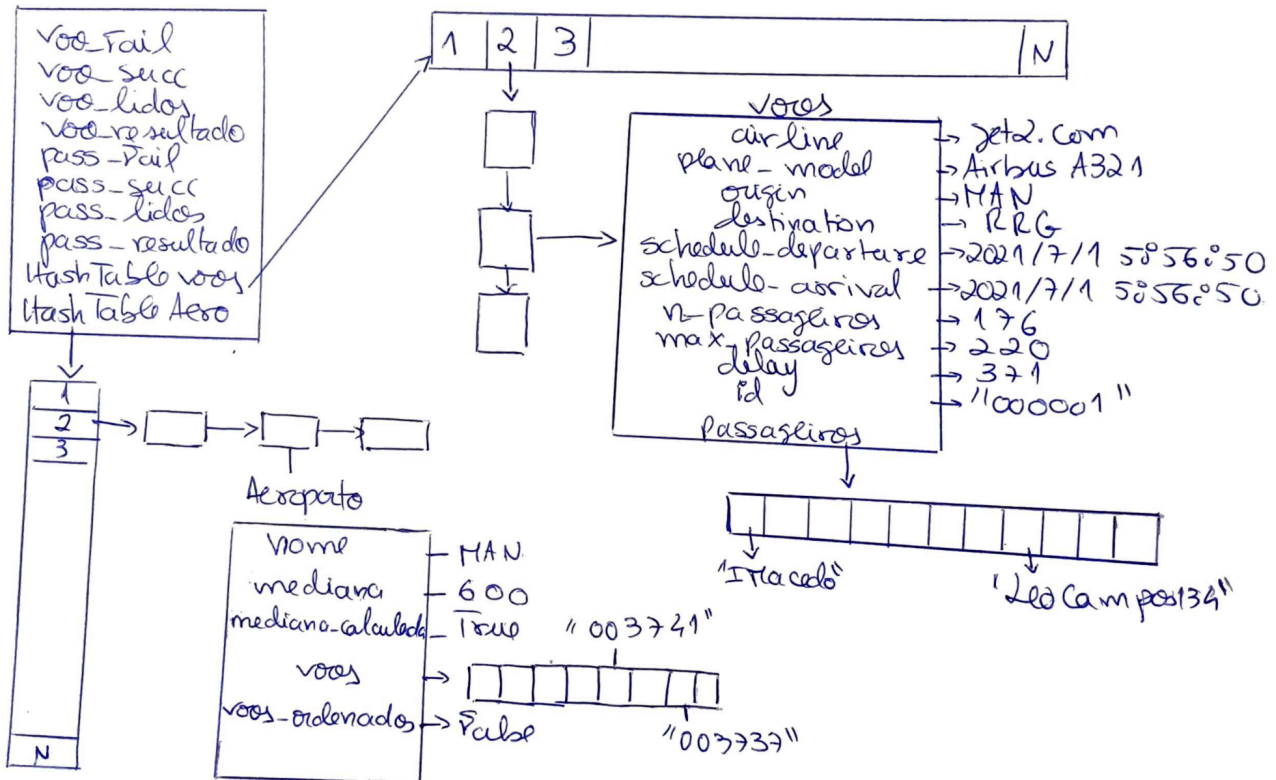 voo_Fail
voo_succ
voo_lidos
voo_resultado
pass_Fail
pass_succ
pass_lidos
pass_resultado
HashTable voos
HashTable Aero
1 2 3 N
voos
airline → Jet2.com
plane_model → Airbus A321
origin → MAN
destination → RRG
schedule_departure → 2021/7/1 5:56:50
schedule_arrival → 2021/7/1 5:56:50
n_passageiros → 176
max_passageiros → 220
delay → 371
id → "000001"
Passageiros
"IMacedo"
"LeoCampos134"
1
2
3
N
Aeroporto
nome - MAN
mediana - 600
mediana_calculada - True
"003741"
voos
voos_ordenados → False
"003737"